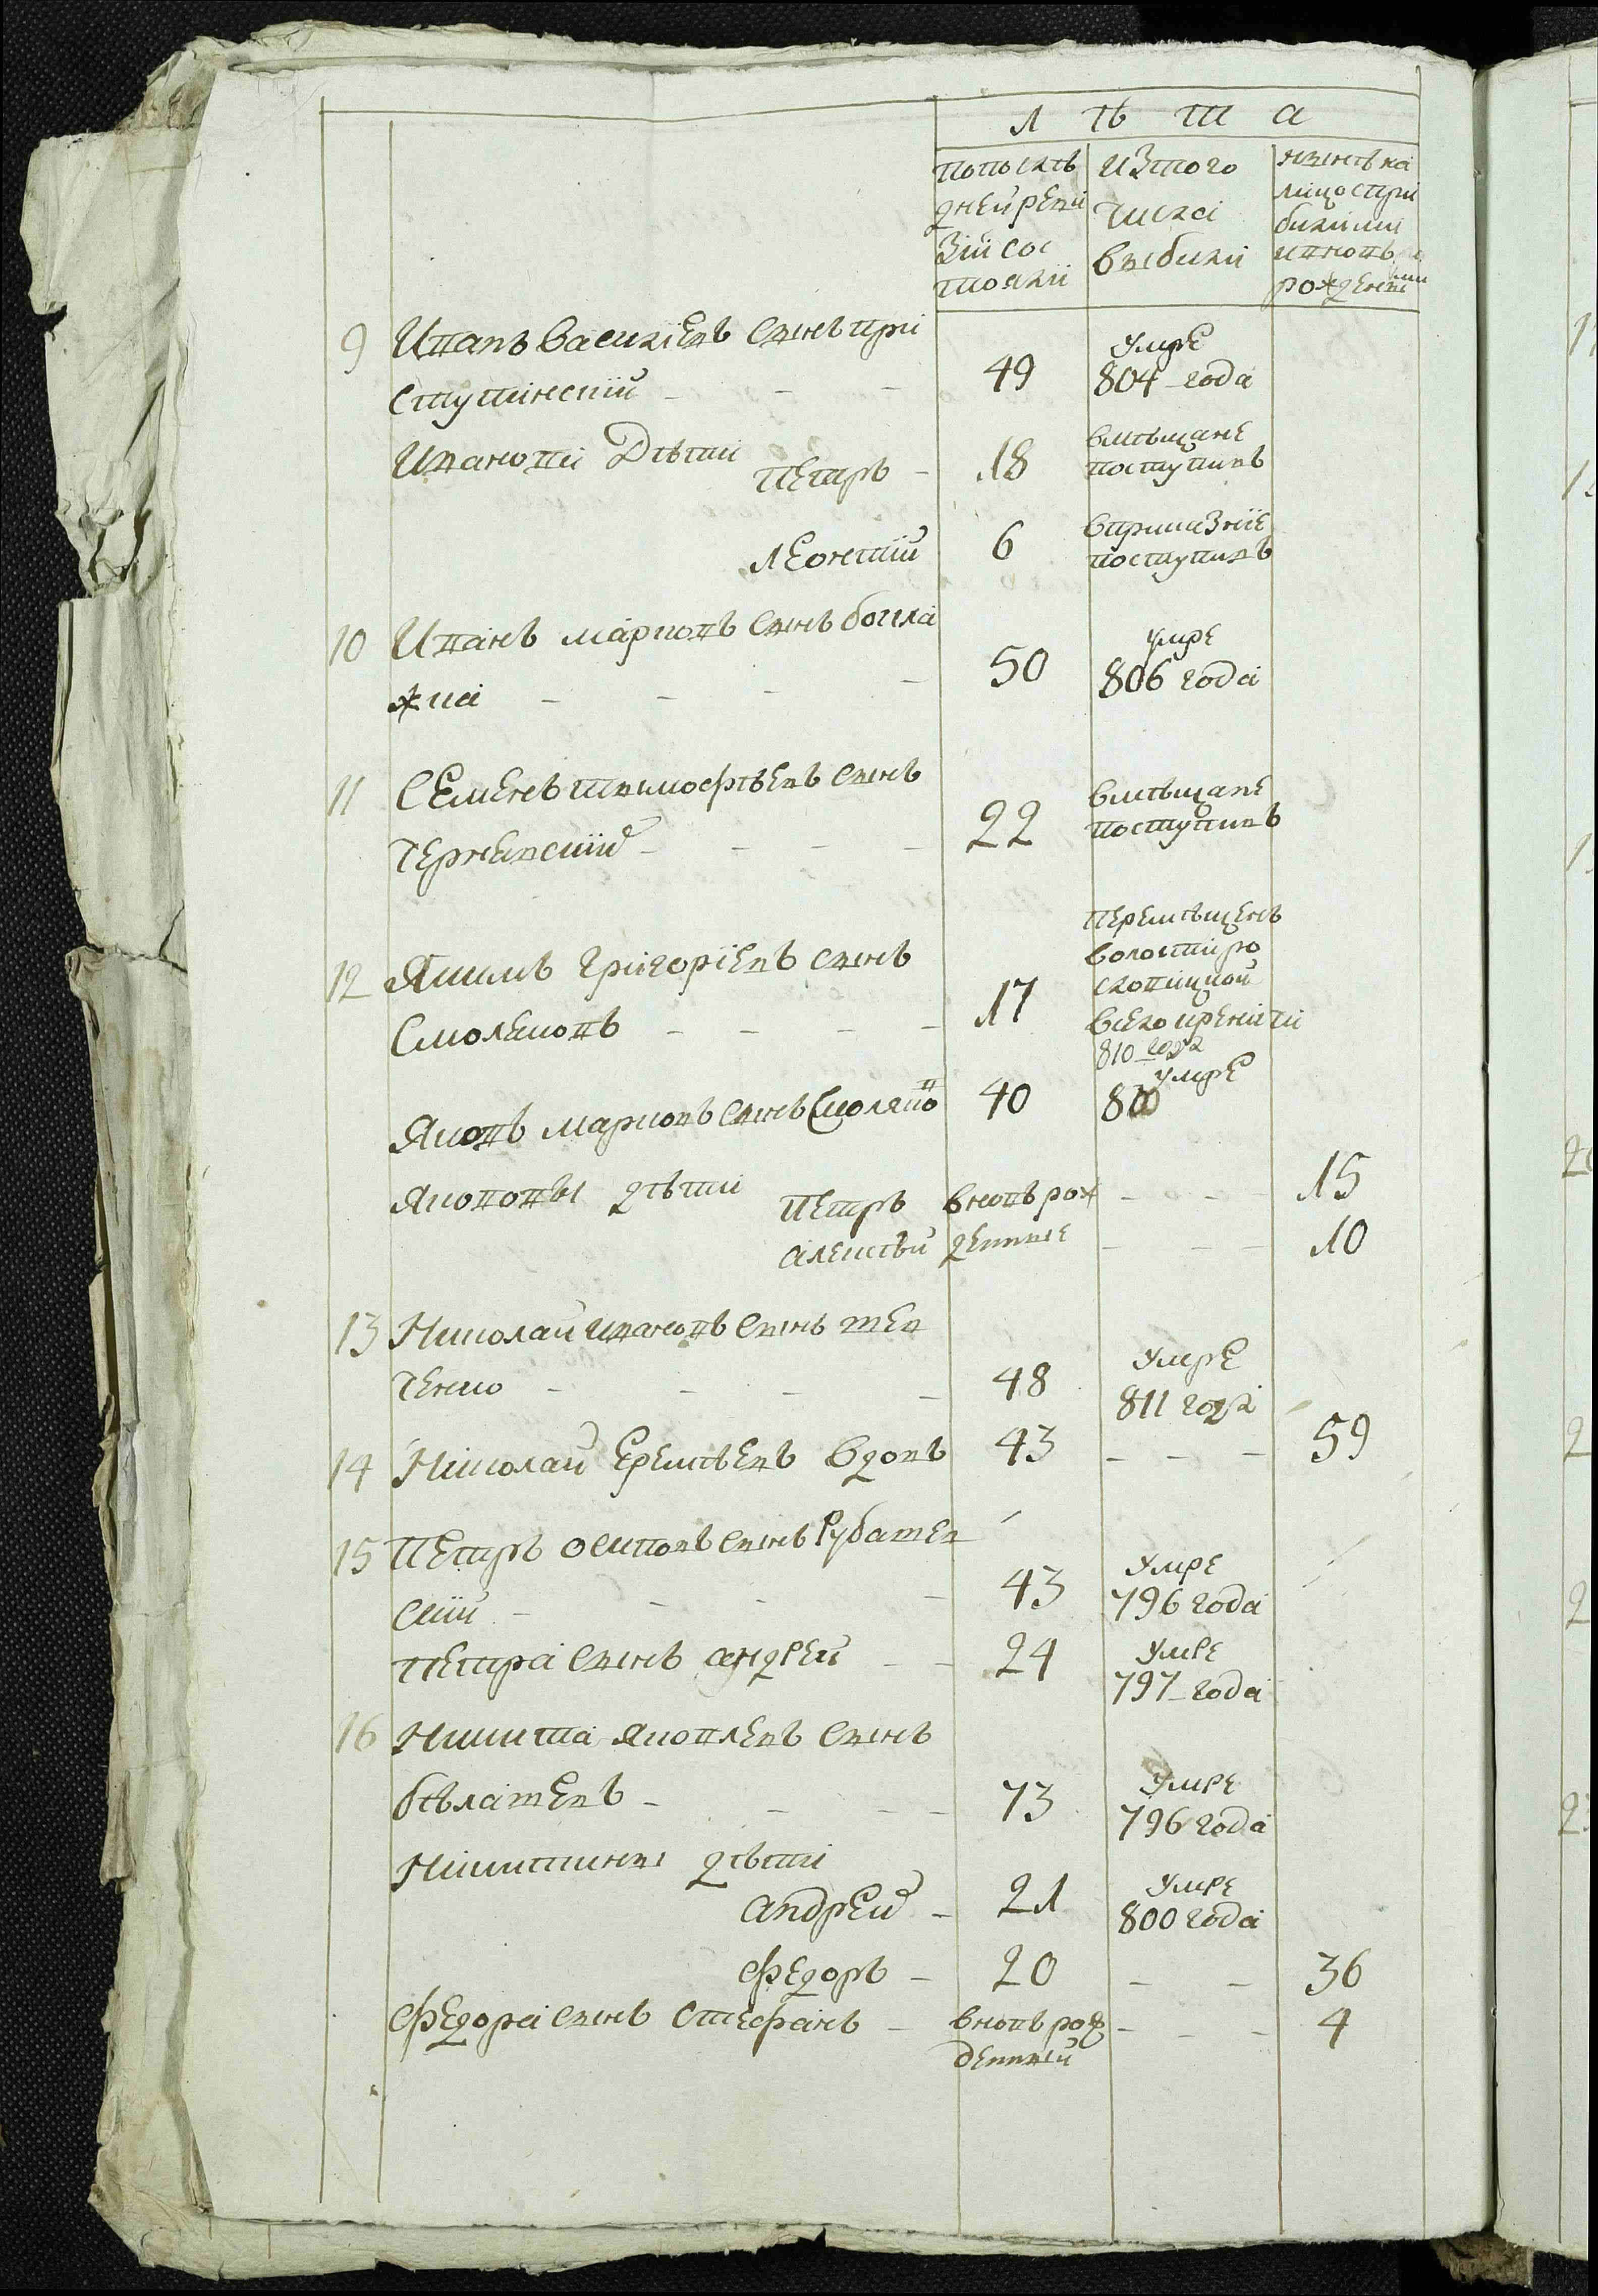 Лѣта
попослѣ
дней реви
зіи сос
тояли
изтого
числа
выбили
нынѣ на
лицо спри
билими
ивновь
рожденными
9 Иванъ Василіевъ Сынъ при
ступинский - - - 49 умре 804 года
Иванови Дѣти Петръ - 18 вмѣщане поступилъ
Леонтий 6 вприказніе поступилъ
10 Иванъ Марковъ Сынъ богла
жка - - - - 50 умре 806 года
11 Семенъ тимофѣевъ Сынъ
Чернявский - - - - 22 вмѣщане поступилъ
12 Яким Григоріевъ сынъ
Смоляковъ - - - - 17 перемѣщенъ
810 года
Яковъ Марковъ сынъ Смоляков 40 умре 800
Якововы дѣти Петръ вновь рож - - - 15
алексѣй денные - - - 10
13 Николай ивановъ Сынъ шев
ченко - - - - 48 умре 811 года
14 Николай Еремѣевъ Вдовъ 43 - - - 59
15 Петръ Осиповъ Сынъ Рубашев
ский - - - - 43 умре 796 года
Петра Сынъ андрей - - 24 умре 797 года
16 Никита Яковлевъ Сынъ
бѣлашевъ - - - - 73 умре 796 года
Никитини дѣти
андрей - 21 умре 800 года
Федоръ - 20 - - 36
Федора Сынъ Стефанъ - вновь рож - - - 4
денный